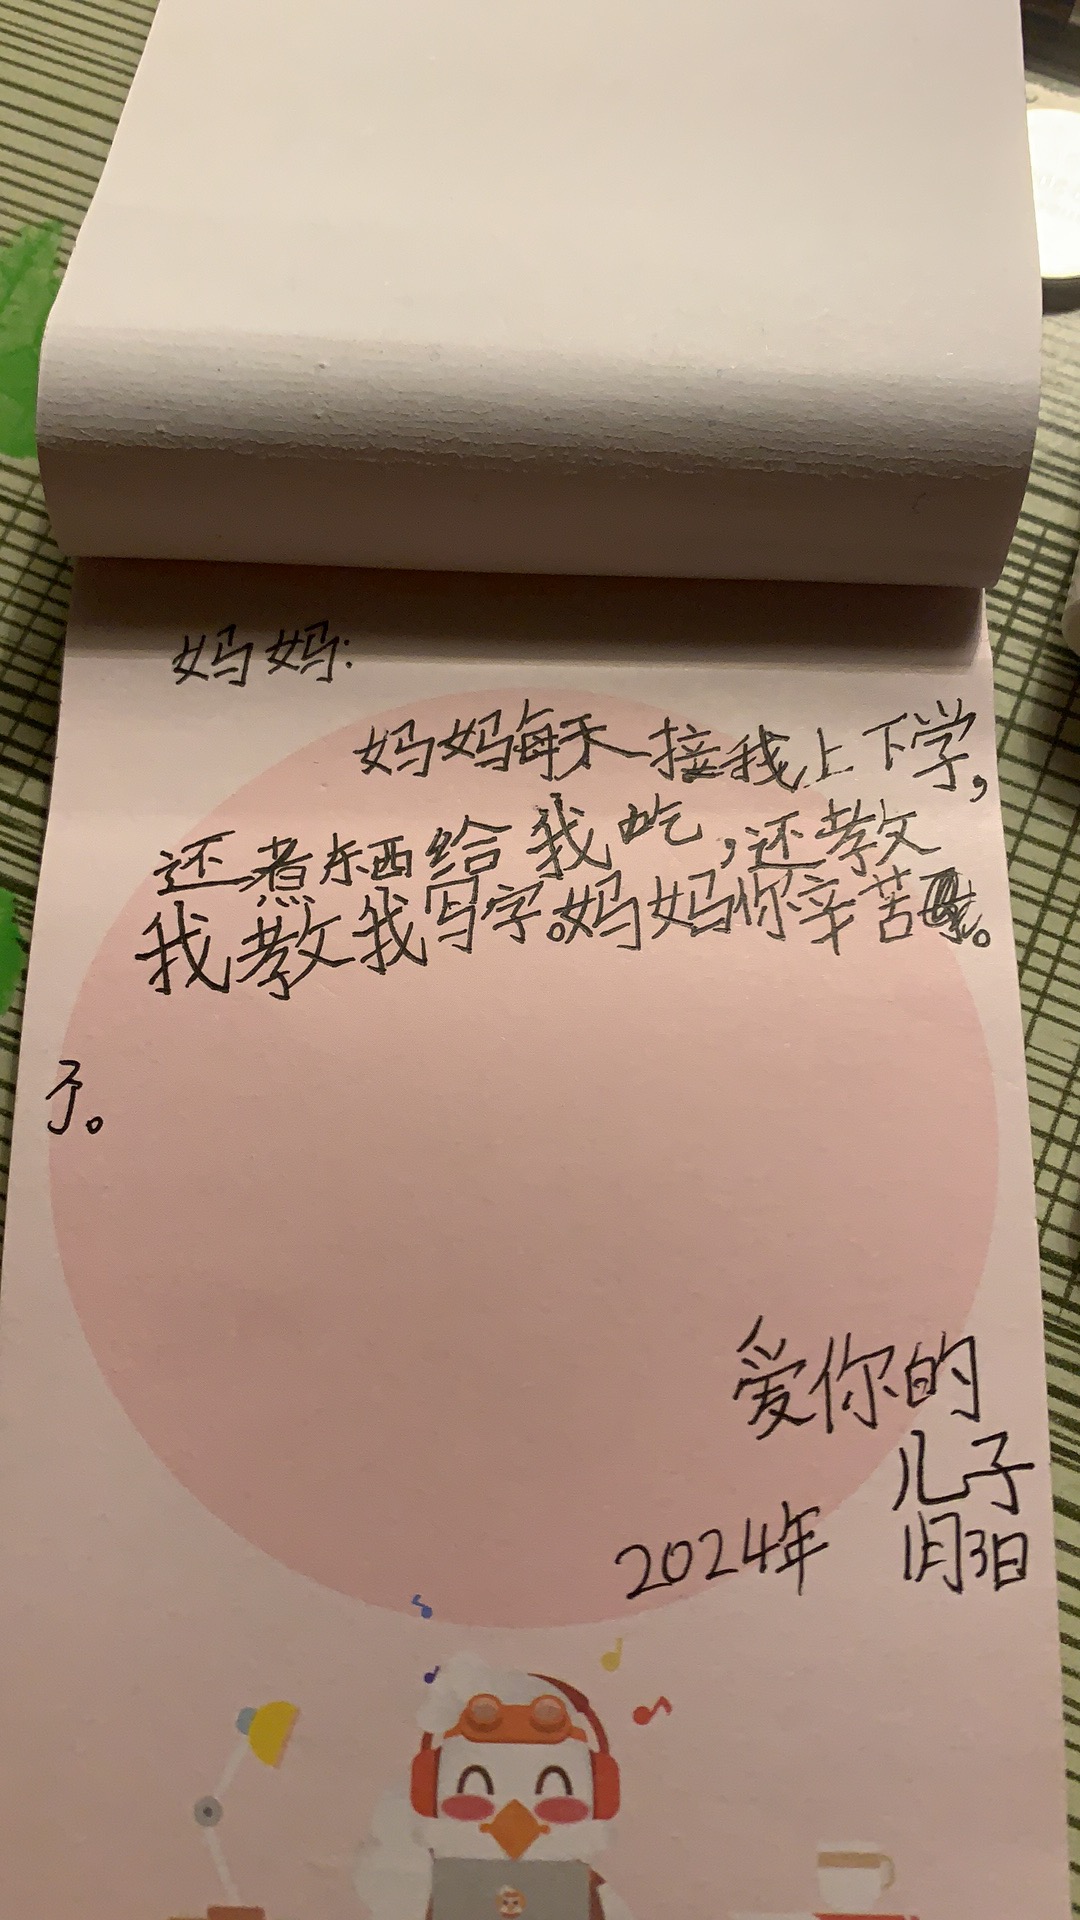 妈妈:
妈妈每天接我上下学,
还煮东西给我吃,还教
我教我写字。妈妈你辛苦。
了。
爱你的
儿子
2024年 1月3日